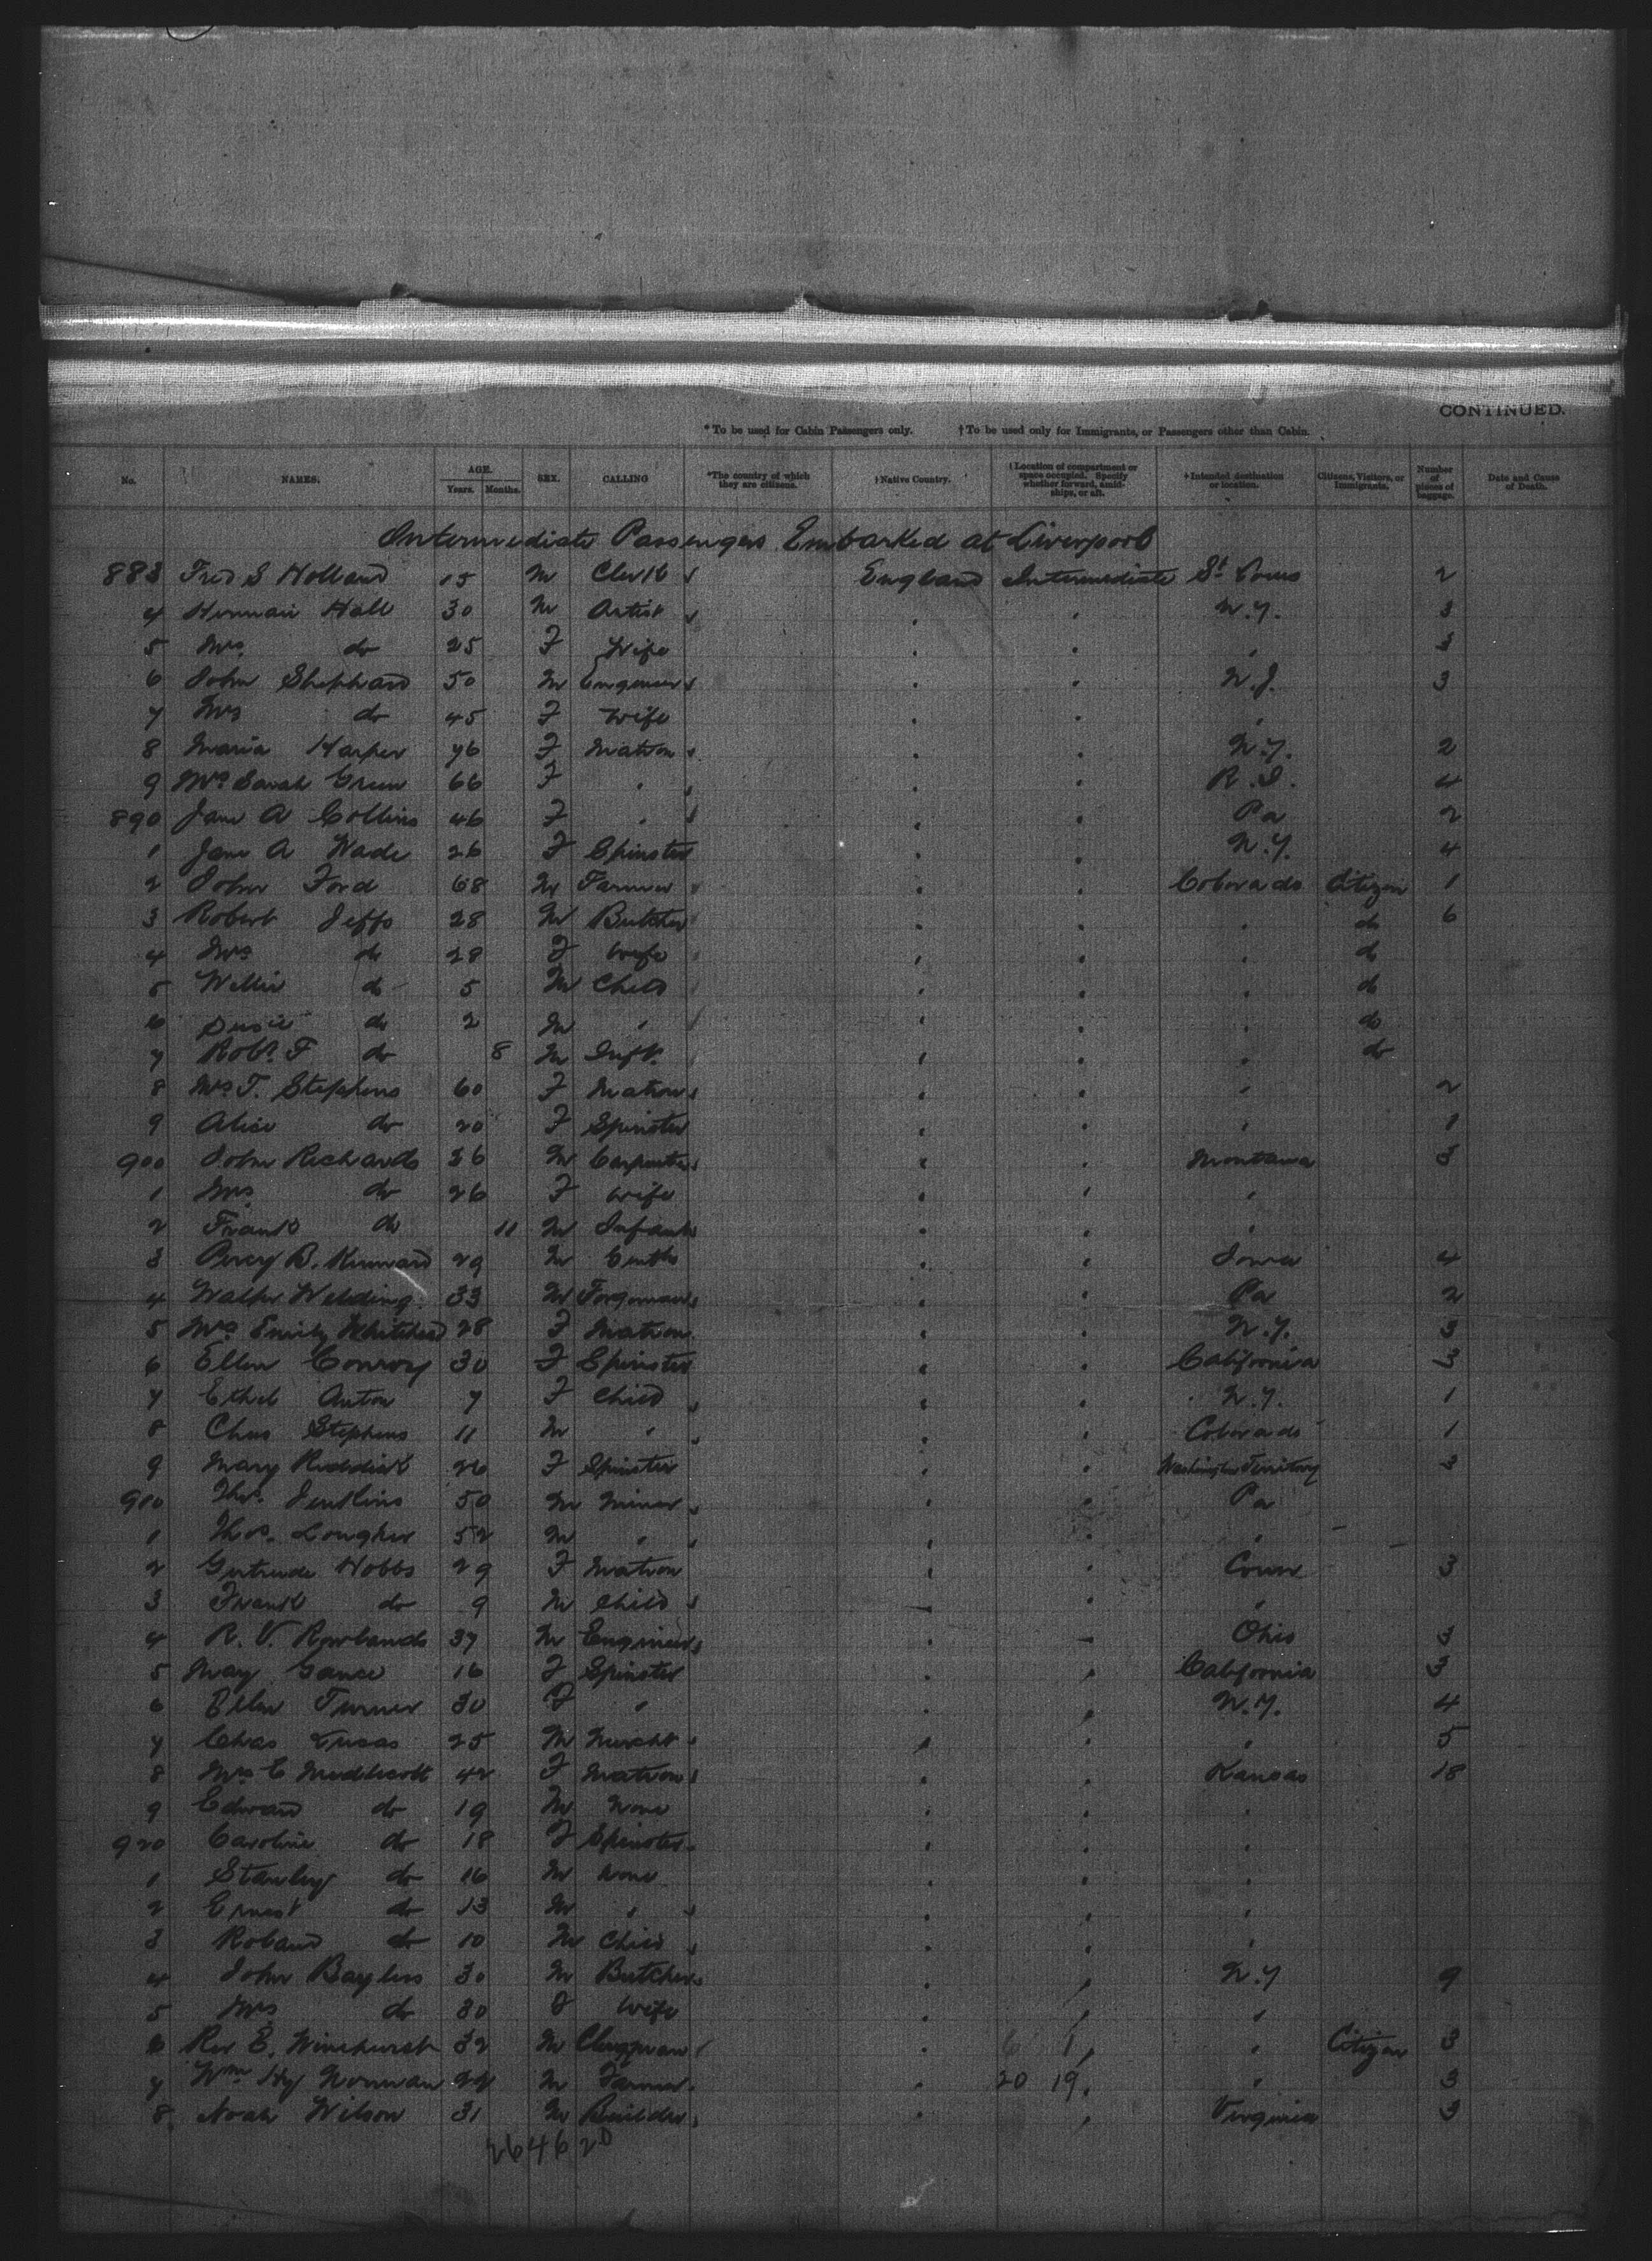 CONTINUED.
* To be used for Cabin Passengers only. † To be used only for Immigrants, or Passengers other than Cabin.
No. NAMES. AGE. Years. Months. SEX. CALLING *The country of which they are citizens. †Native Country. †Location of compartment or space occupied. Specify whether forward, amidships, or aft. †Intended destination or location. Citizens, Visitors, or Immigrants. Number of pieces of baggage. Date and Cause of Death.
Intermediate Passengers Embarked at Liverpool
883 Fred S Holland 15 M Clerk England Intermediate St Louis 2
4 Herman Hall 30 M Artist " " N.Y. 3
5 Mrs do 25 F Wife " " " 3
6 John Shephard 50 M Engineer " " N.J. 3
7 Mrs do 45 F Wife " " "
8 Maria Harper 76 F Matron " " N.Y. 2
9 Mrs Sarah Green 66 F " " " R.I. 4
890 Jane A Collins 46 F " " " Pa 2
1 Jane A Wade 26 F Spinster " " N.Y. 4
2 John Ford 68 M Farmer " " Colorado Citizen 1
3 Robert Jeffs 28 M Butcher " " " do 6
4 Mrs do 28 F Wife " " " do
5 Willie do 5 M Child " " " do
6 Susie do 2 M " " " " do
7 Robt F do 8 M Inft. " " " do
8 Mrs T. Stephens 60 F Matron " " " 2
9 Alice do 20 F Spinster " " " 1
900 John Richards 26 M Carpenter " " Montana 3
1 Mrs do 26 F Wife " " "
2 Frank do 11 M Infant " " "
3 Percy B. Kennard 29 M " " Iowa 4
4 Walter Welding 33 M Forgeman " " Pa 2
5 Mrs Emily Whitehead 28 F Matron " " N.Y. 3
6 Ellen Conroy 30 F Spinster " " California 3
7 Ethel Anton 7 F Child " " N.Y. 1
8 Chas Stephens 11 M " " " Colorado 1
9 Mary Reddick 26 F Spinster " " Washington Territory 3
910 Thos. Jenkins 50 M Miner " " Pa
1 Thos. Lougher 52 M " " " "
2 Gertrude Hobbs 29 F Matron " " Conn 3
3 Frank do 9 M Child " " "
4 R. V. Rowlands 37 M Engineer " " Ohio 3
5 May Gance 16 F Spinster " " California 3
6 Ellen Turner 30 F " " " N.Y. 4
7 Chas Lucas 25 M Mercht " " " 5
8 Mrs E Medlicott 42 F Matron " " Kansas 18
9 Edward do 19 M None " " "
920 Caroline do 18 F Spinster " " "
1 Stanley do 16 M None " " "
2 Ernest do 13 M " " " "
3 Roland do 10 M Child " " "
4 John Bayliss 30 M Butcher " " N.Y 9
5 Mrs do 30 F Wife " " "
6 Rev E. Winehurst 32 M Clergyman " 6 1 " " Citizen 3
7 Wm Hy Norman 22 M Farmer " 20 19 " " 3
8 Noah Wilson 31 M Builder " " Virginia 3
264620